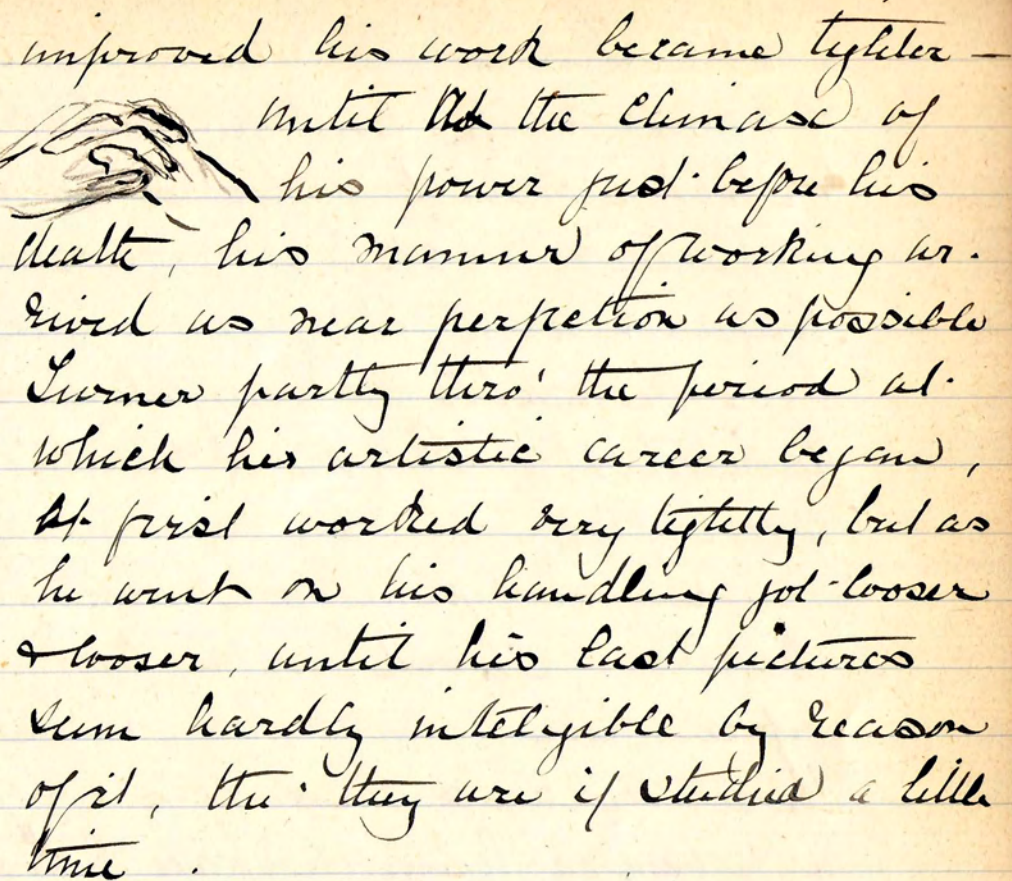 improved his work became tighter —
until the climax of
his power just before his
death, his manner of working ar-
rived as near perfection as possible
Turner partly thro' the period at
which his artistic career began,
At first worked very tightly, but as
he went on his handling got looser
& looser, until his last pictures
seem hardly intelygible by reason
of it, tho' they are if studied a little
time.